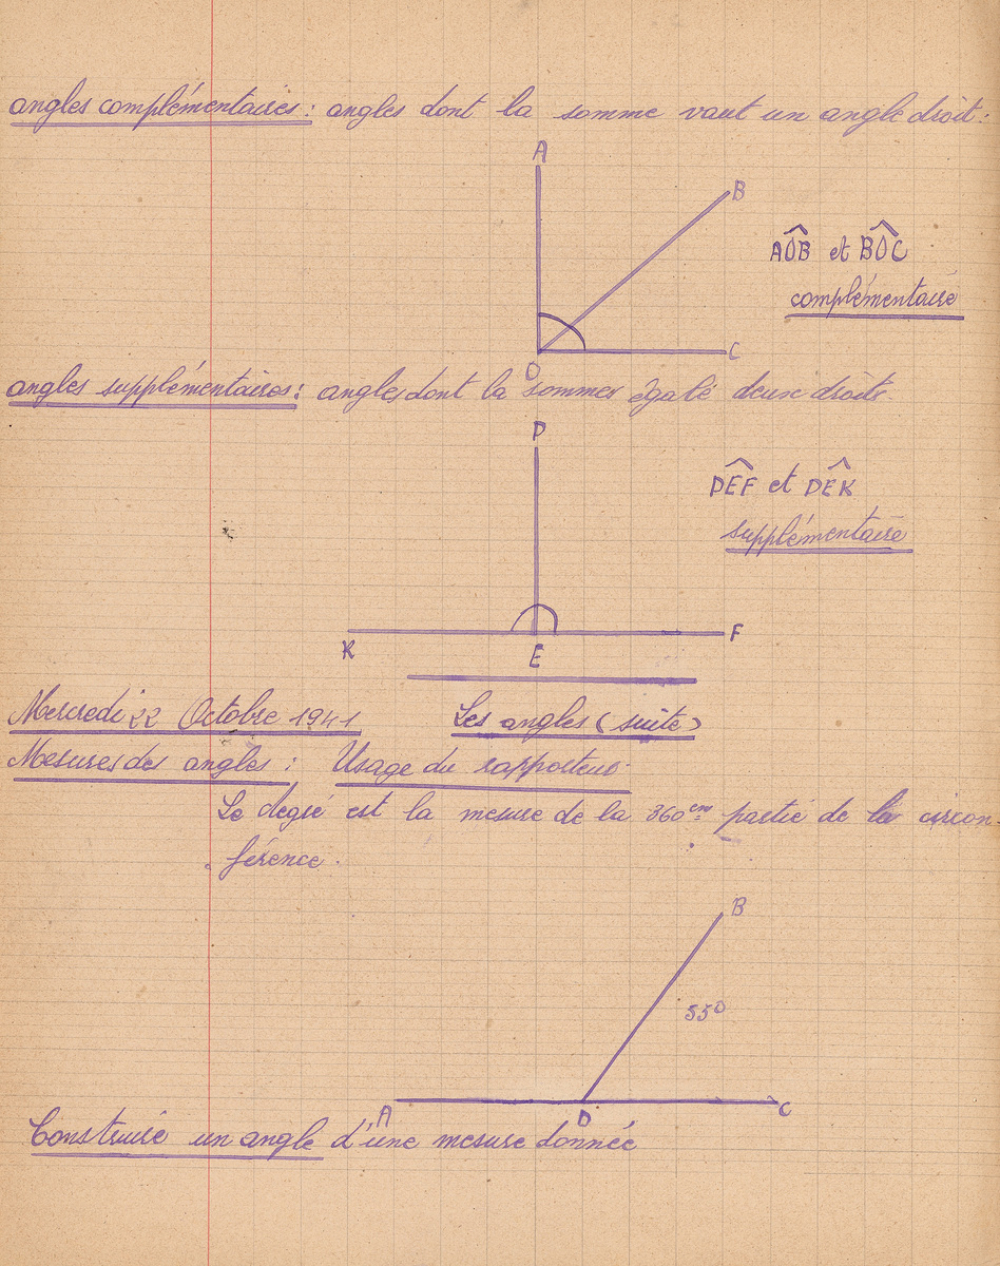 angles complémentaires : angles dont la somme vaut un angle droit :
A
B
AOB et BOC
complémentaire
C
O
angles supplémentaires : angles dont la sommes égale deux droits.
D
DEF et DEK
supplémentaire
F
K
E
Mercredi 22 Octobre 1941 Les angles (suite)
Mesures des angles : Usage du rapporteur
Le degré est la mesure de la 360em partie de la circon-
férence.
B
55°
A
O
C
Construire un angle d'une mesure donnée